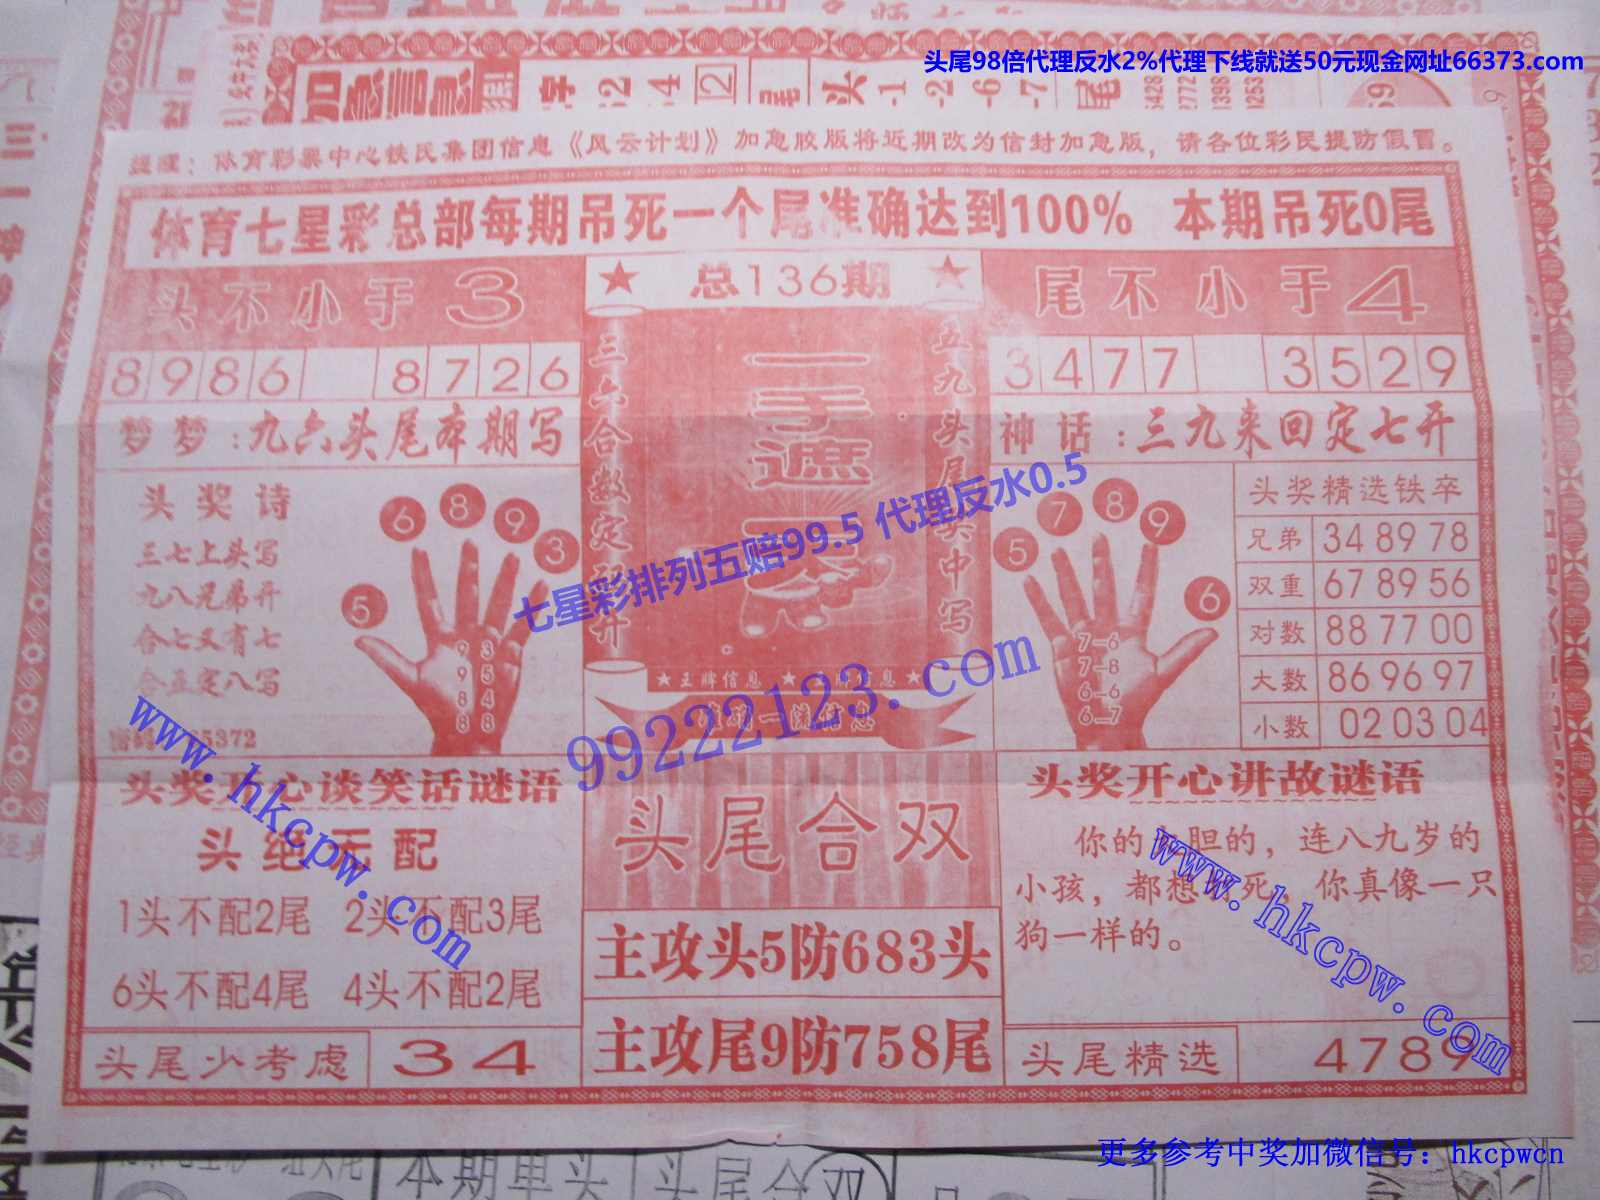 头尾98倍代理反水2%代理下线就送50元现金网址66373.com
提醒：体育彩票中心铁民集团信息《风云计划》加急胶版将近期改为信封加急版，请各位彩民提防假冒。
体育七星彩总部每期吊死一个尾准确达到100% 本期吊死0尾
头不小于3
8986 8726
梦梦：九六头尾本期写
★ 总136期 ★
尾不小于4
3477 3529
神话：三九来回定七开
头奖诗
三七上头写
九八兄弟开
合七又有七
合五定八写
5 6 8 9 3
9 3
9 5
8 4
8 8
三六合数定
开
一手遮天
五九头尾
中写
★王牌信息★
七星彩排列五赔99.5 代理反水0.5
99222123.com
5 7 8 9 6
7-6
7-8
6-6
6-7
头奖精选铁卒
兄弟 34 89 78
双重 67 89 56
对数 88 77 00
大数 86 96 97
小数 02 03 04
头奖开心谈笑话谜语
头绝不配
1头不配2尾 2头不配3尾
6头不配4尾 4头不配2尾
头尾少考虑 34
www.hkcpw.com
头尾合双
主攻头5防683头
主攻尾9防758尾
头奖开心讲故谜语
你的 胆的，连八九岁的
小孩，都想 死，你真像一只
狗一样的。
头尾精选 4789
www.hkcpw.com
本期单头
头尾合双
更多参考中奖加微信号：hkcpwcn